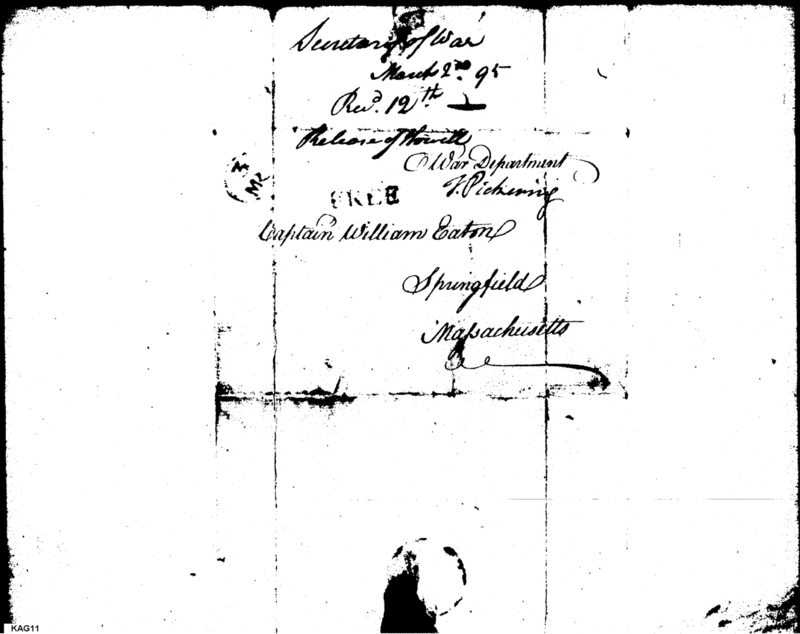 Secretary of War
March 2nd. 95
Recd. 12th
Release of Howell
War Department
T. Pickering
FREE
Captain William Eaton
Springfield
Massachusetts
KAG11